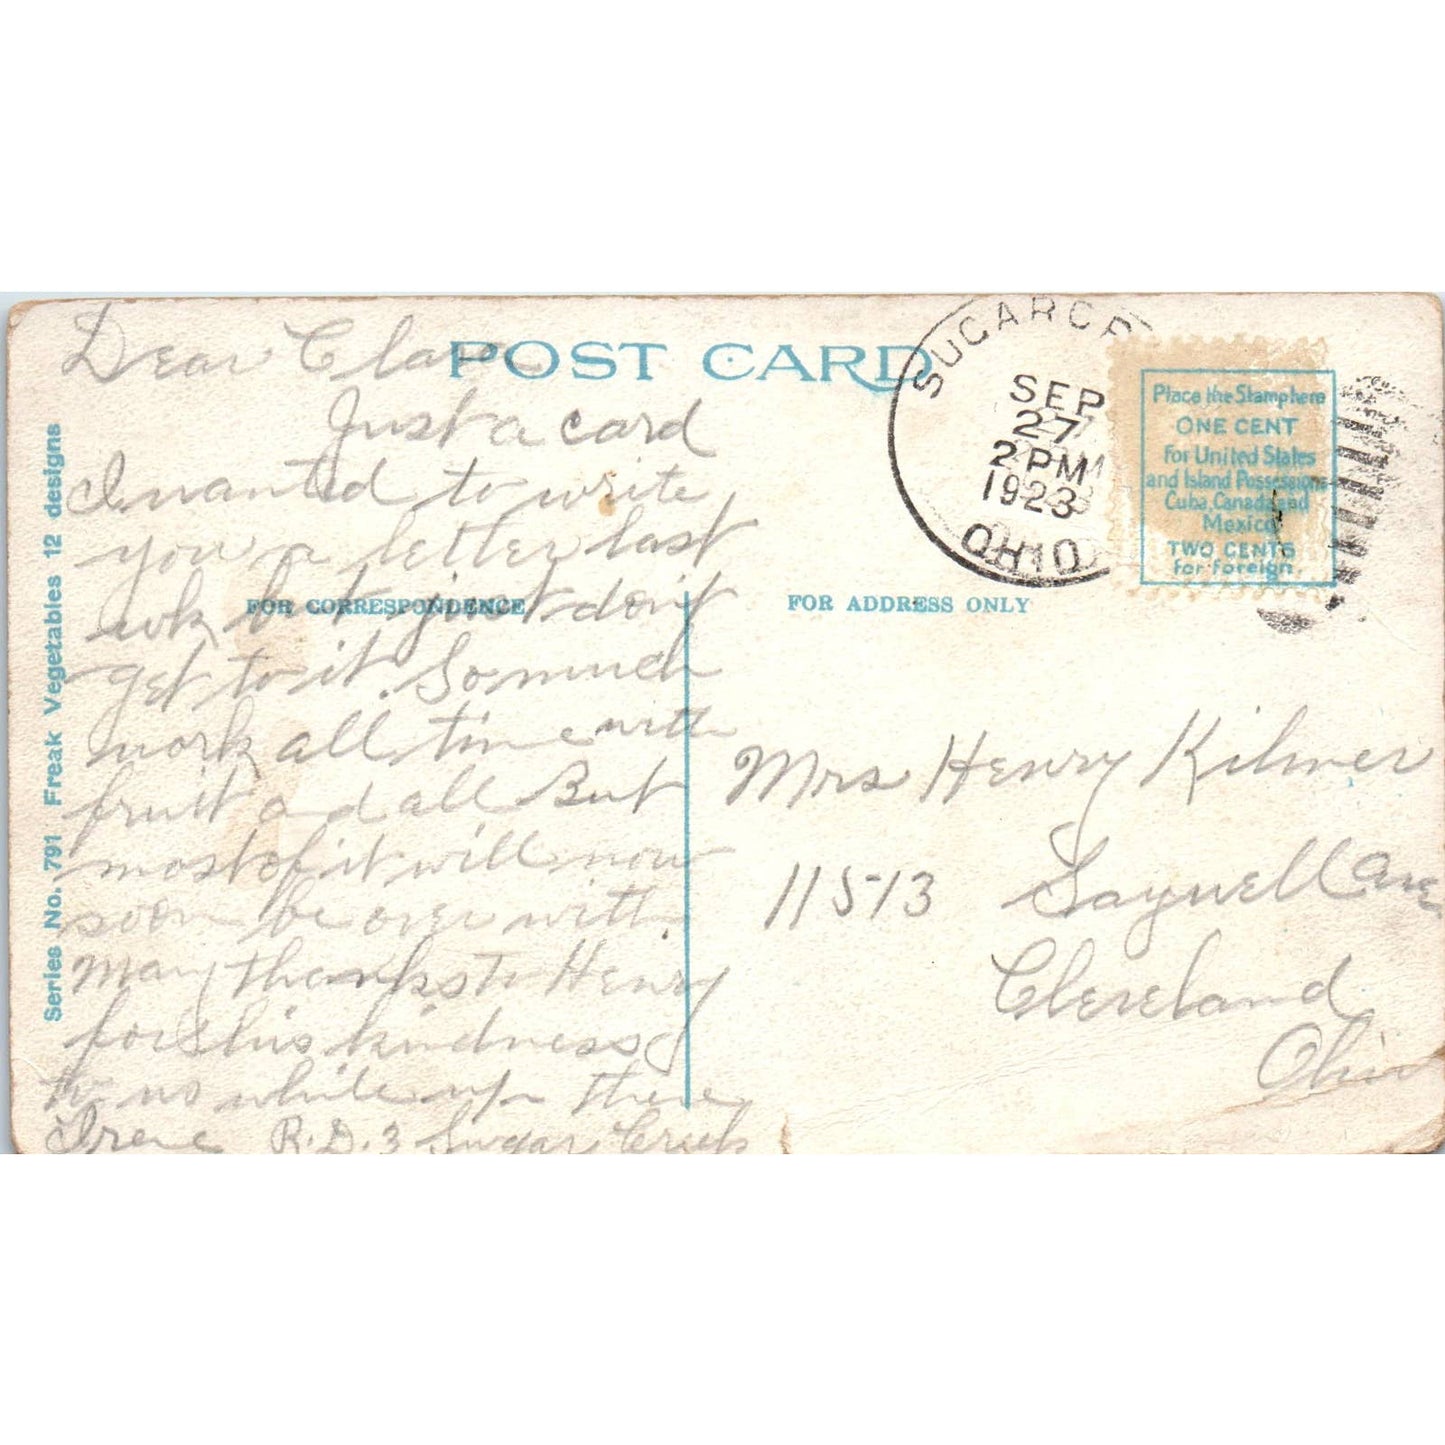 POST CARD
Series No. 791 Freak Vegetables 12 designs
FOR CORRESPONDENCE
Dear Clara
Just a card
I wanted to write
you a letter last
wk but just don't
get to it. So much
work all time with
fruit and all But
most of it will now
soon be over with.
Many thanks to Henry
for his kindness
to us while up there
Irene R.D.3 Sugar Creek
SUGARCR
SEP
27
2 PM
1923
OHIO
Place the Stamp here
ONE CENT
For United States
and Island Possessions
Cuba, Canada and
Mexico
TWO CENTS
for foreign.
FOR ADDRESS ONLY
Mrs Henry Kilmer
11513 Saywell Ave
Cleveland
Ohio